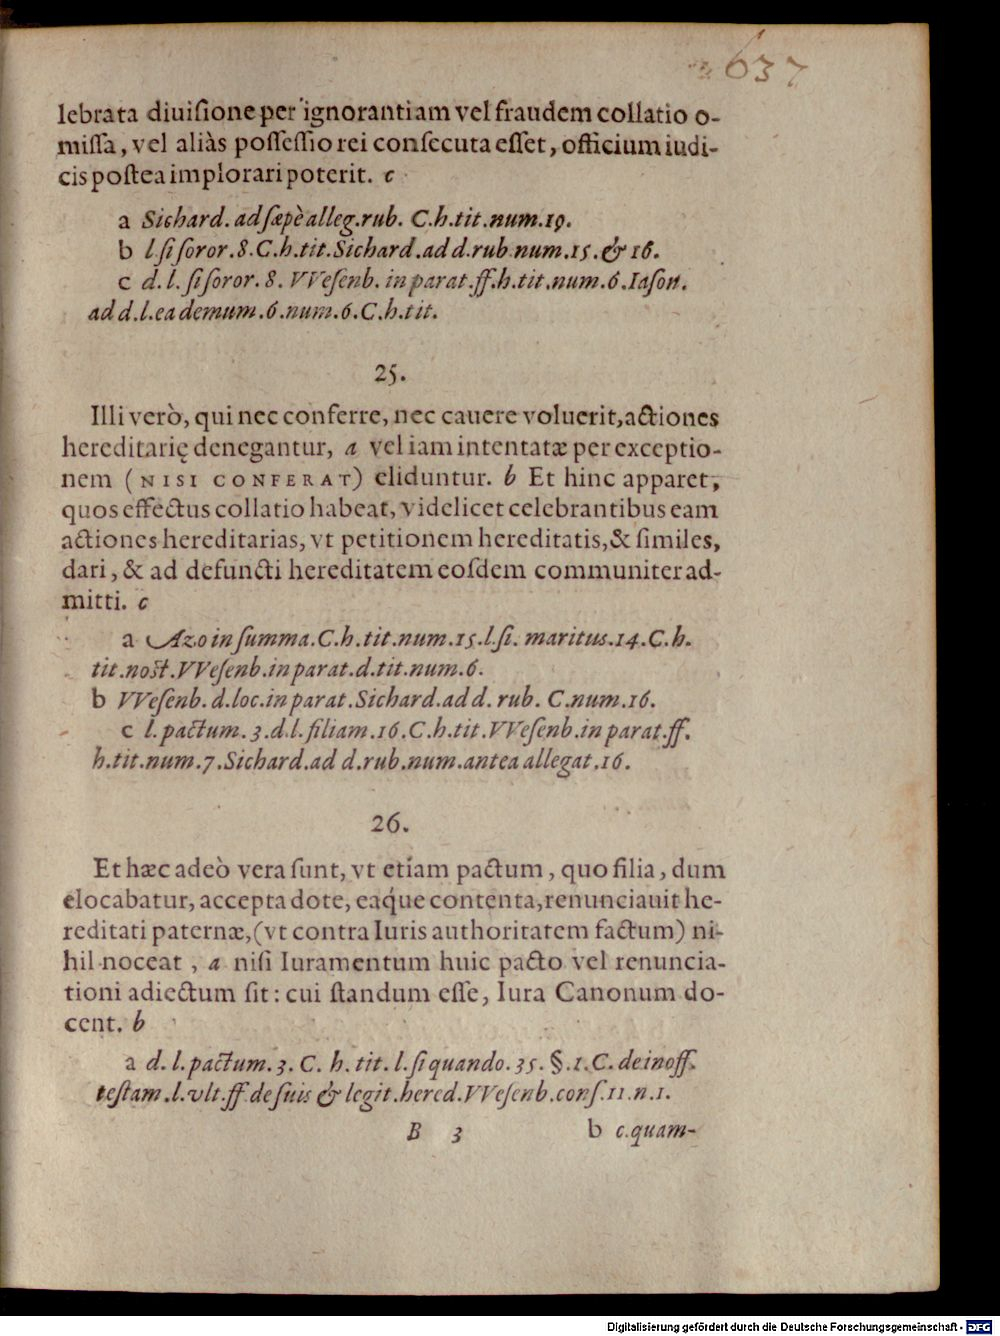 637
lebrata diuisione per ignorantiam vel fraudem collatio o-
missa, vel aliàs possessio rei consecuta esset, officium iudi-
cis postea implorari poterit. c
a Sichard. ad sæpè alleg. rub. C. h. tit. num. 19.
b l. si soror. 8. C. h. tit. Sichard. ad d. rub num. 15. & 16.
c d. l. si soror. 8. VVesenb. in parat. ff. h. tit. num. 6. Iason.
ad d. l. ea demum. 6. num. 6. C. h. tit.
25.
Illi verò, qui nec conferre, nec cauere voluerit, actiones
hereditarię denegantur, a vel iam intentatæ per exceptio-
nem (NISI CONFERAT) eliduntur. b Et hinc apparet,
quos effectus collatio habeat, videlicet celebrantibus eam
actiones hereditarias, vt petitionem hereditatis, & similes,
dari, & ad defuncti hereditatem eosdem communiter ad-
mitti. c
a Azo in summa. C. h. tit. num. 15. l. si. maritus. 14. C. h.
tit. nost. VVesenb. in parat. d. tit. num. 6.
b VVesenb. d. loc. in parat. Sichard. ad d. rub. C. num. 16.
c l. pactum. 3. d. l. filiam. 16. C. h. tit. VVesenb. in parat. ff.
h. tit. num. 7. Sichard. ad d. rub. num. antea allegat. 16.
26.
Et hæc adeò vera sunt, vt etiam pactum, quo filia, dum
elocabatur, accepta dote, eáque contenta, renunciauit he-
reditati paternæ, (vt contra Iuris authoritatem factum) ni-
hil noceat, a nisi Iuramentum huic pacto vel renuncia-
tioni adiectum sit: cui standum esse, Iura Canonum do-
cent. b
a d. l. pactum. 3. C. h. tit. l. si quando. 35. §. 1. C. de inoff.
testam. l. vlt. ff. de suis & legit. hered. VVesenb. cons. 11. n. 1.
B 3 b c. quam-
Digitalisierung gefördert durch die Deutsche Forschungsgemeinschaft - DFG